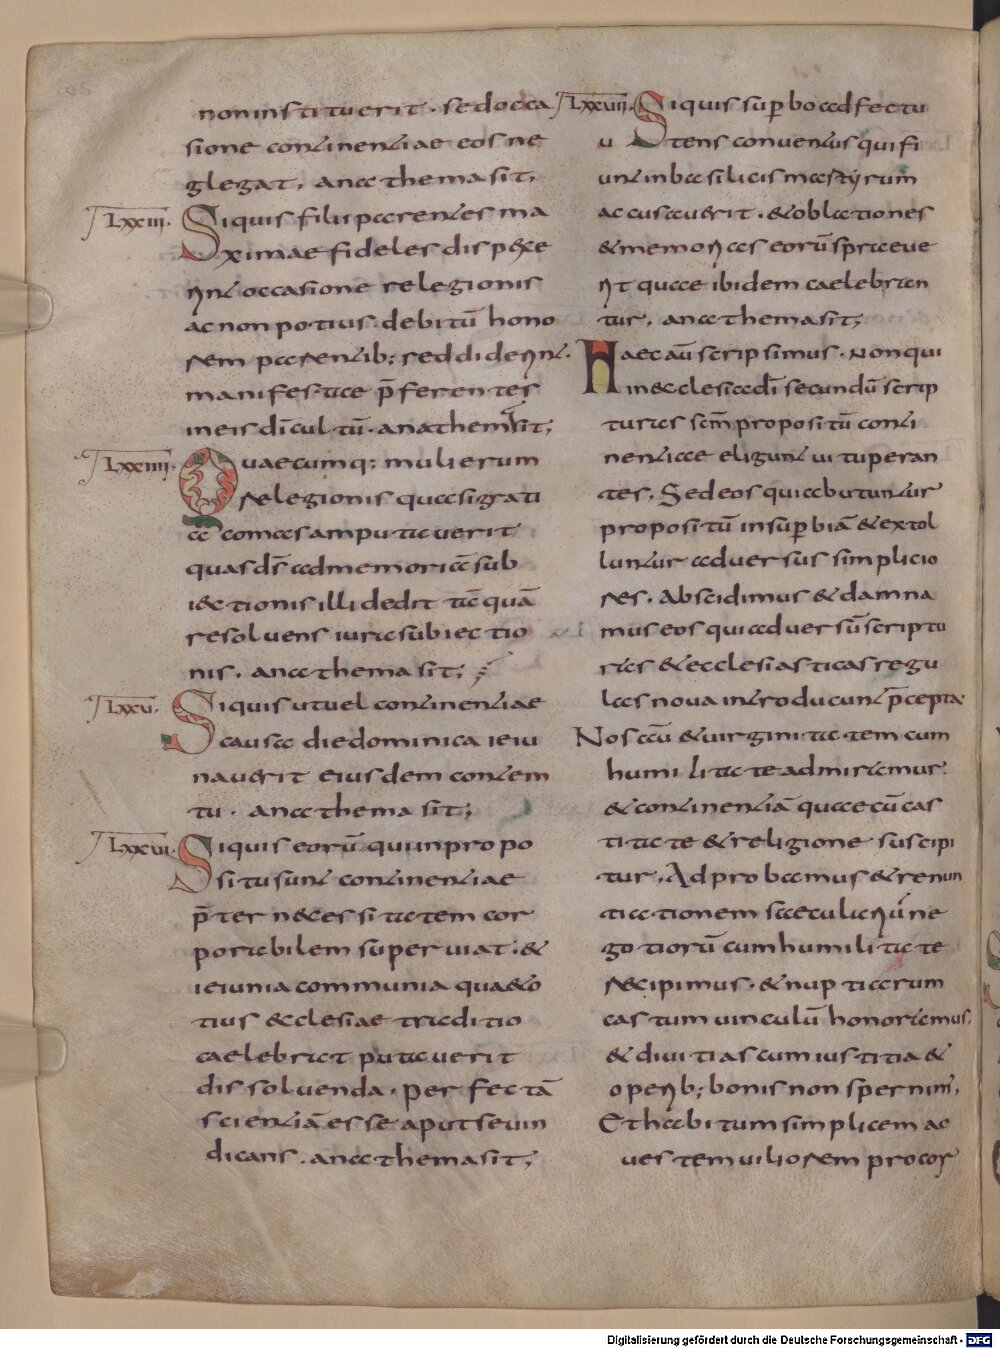 non instituerit . sed occa
sione continentiae eos ne
glegat , anathema sit ;
LXXIII. Siquis filii parentes ma
xime fideles dispexe
rint occasione relegionis
ac non potius debitū hono
rem parentib; reddiderint .
manifestae p̄ferentes
in eis dī cultū . anathema sit ;
LXXIIII. Quaecumq; mulierum
relegionis quae sigrati
ae comas amputaverit
quas dš ad memoriā sub
iectionis illi dedit tāquā
resolvens iura subiectio
nis . anathema sit ;
LXXV. Siquis ut vel continentiae
causa die dominica ieiu
naverit eiusdem contem
tu . anathema sit ;
LXXVI. Siquis eorū qui in propo
situ sunt continentiae
p̄ter necessitatem cor
porabilem superviat . &
ieiunia communia quae to
tius ecclesiae traditio
caelebrat putaverit
dissolvenda , perfectā
scientiā esse aput se vin
dicans . anathema sit ;
LXXVII. Siquis superbo adfectu
utens conventus qui fi
unt in basilicis martyrum
accusaverit . & oblationes
& memorias eorū spraeve
rit quae ibidem caelebran
tur , anathema sit ;
Haec aū scripsimus . non qui
in ecclesia dī secundū scrip
turas scm̄ propositū conti
nentiae eligunt vituperan
tes , Sed eos qui abutuntur
propositū in superbiā & extol
luntur adversus simplicio
res . Abscidimus & damna
mus eos qui adversū scriptu
ras & ecclesiasticas regu
las nova introducunt p̄cepta.
Nos aū & virginitatem cum
humilitate admiramur.
& continentiā quae cū cas
titate & religione suscipi
tur , Adprobamus & renun
tiationem saeculariū ne
gotiorū cum humilitate
recipimus . & nuptiarum
castum vinculū honoramus,
& divitias cum iustitia &
operib; bonis non spernim',
Et habitum simplicem ac
vestem viliorem pro cor
Digitalisierung gefördert durch die Deutsche Forschungsgemeinschaft - DFG